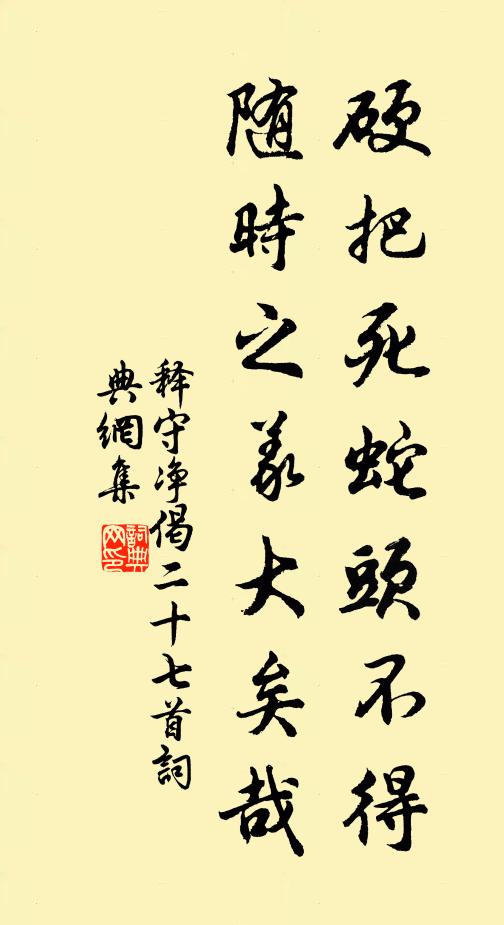 硬把死蛇頭不得
随時之義大矣哉
释守净偈二十七首詞
典網集
詞典
网印